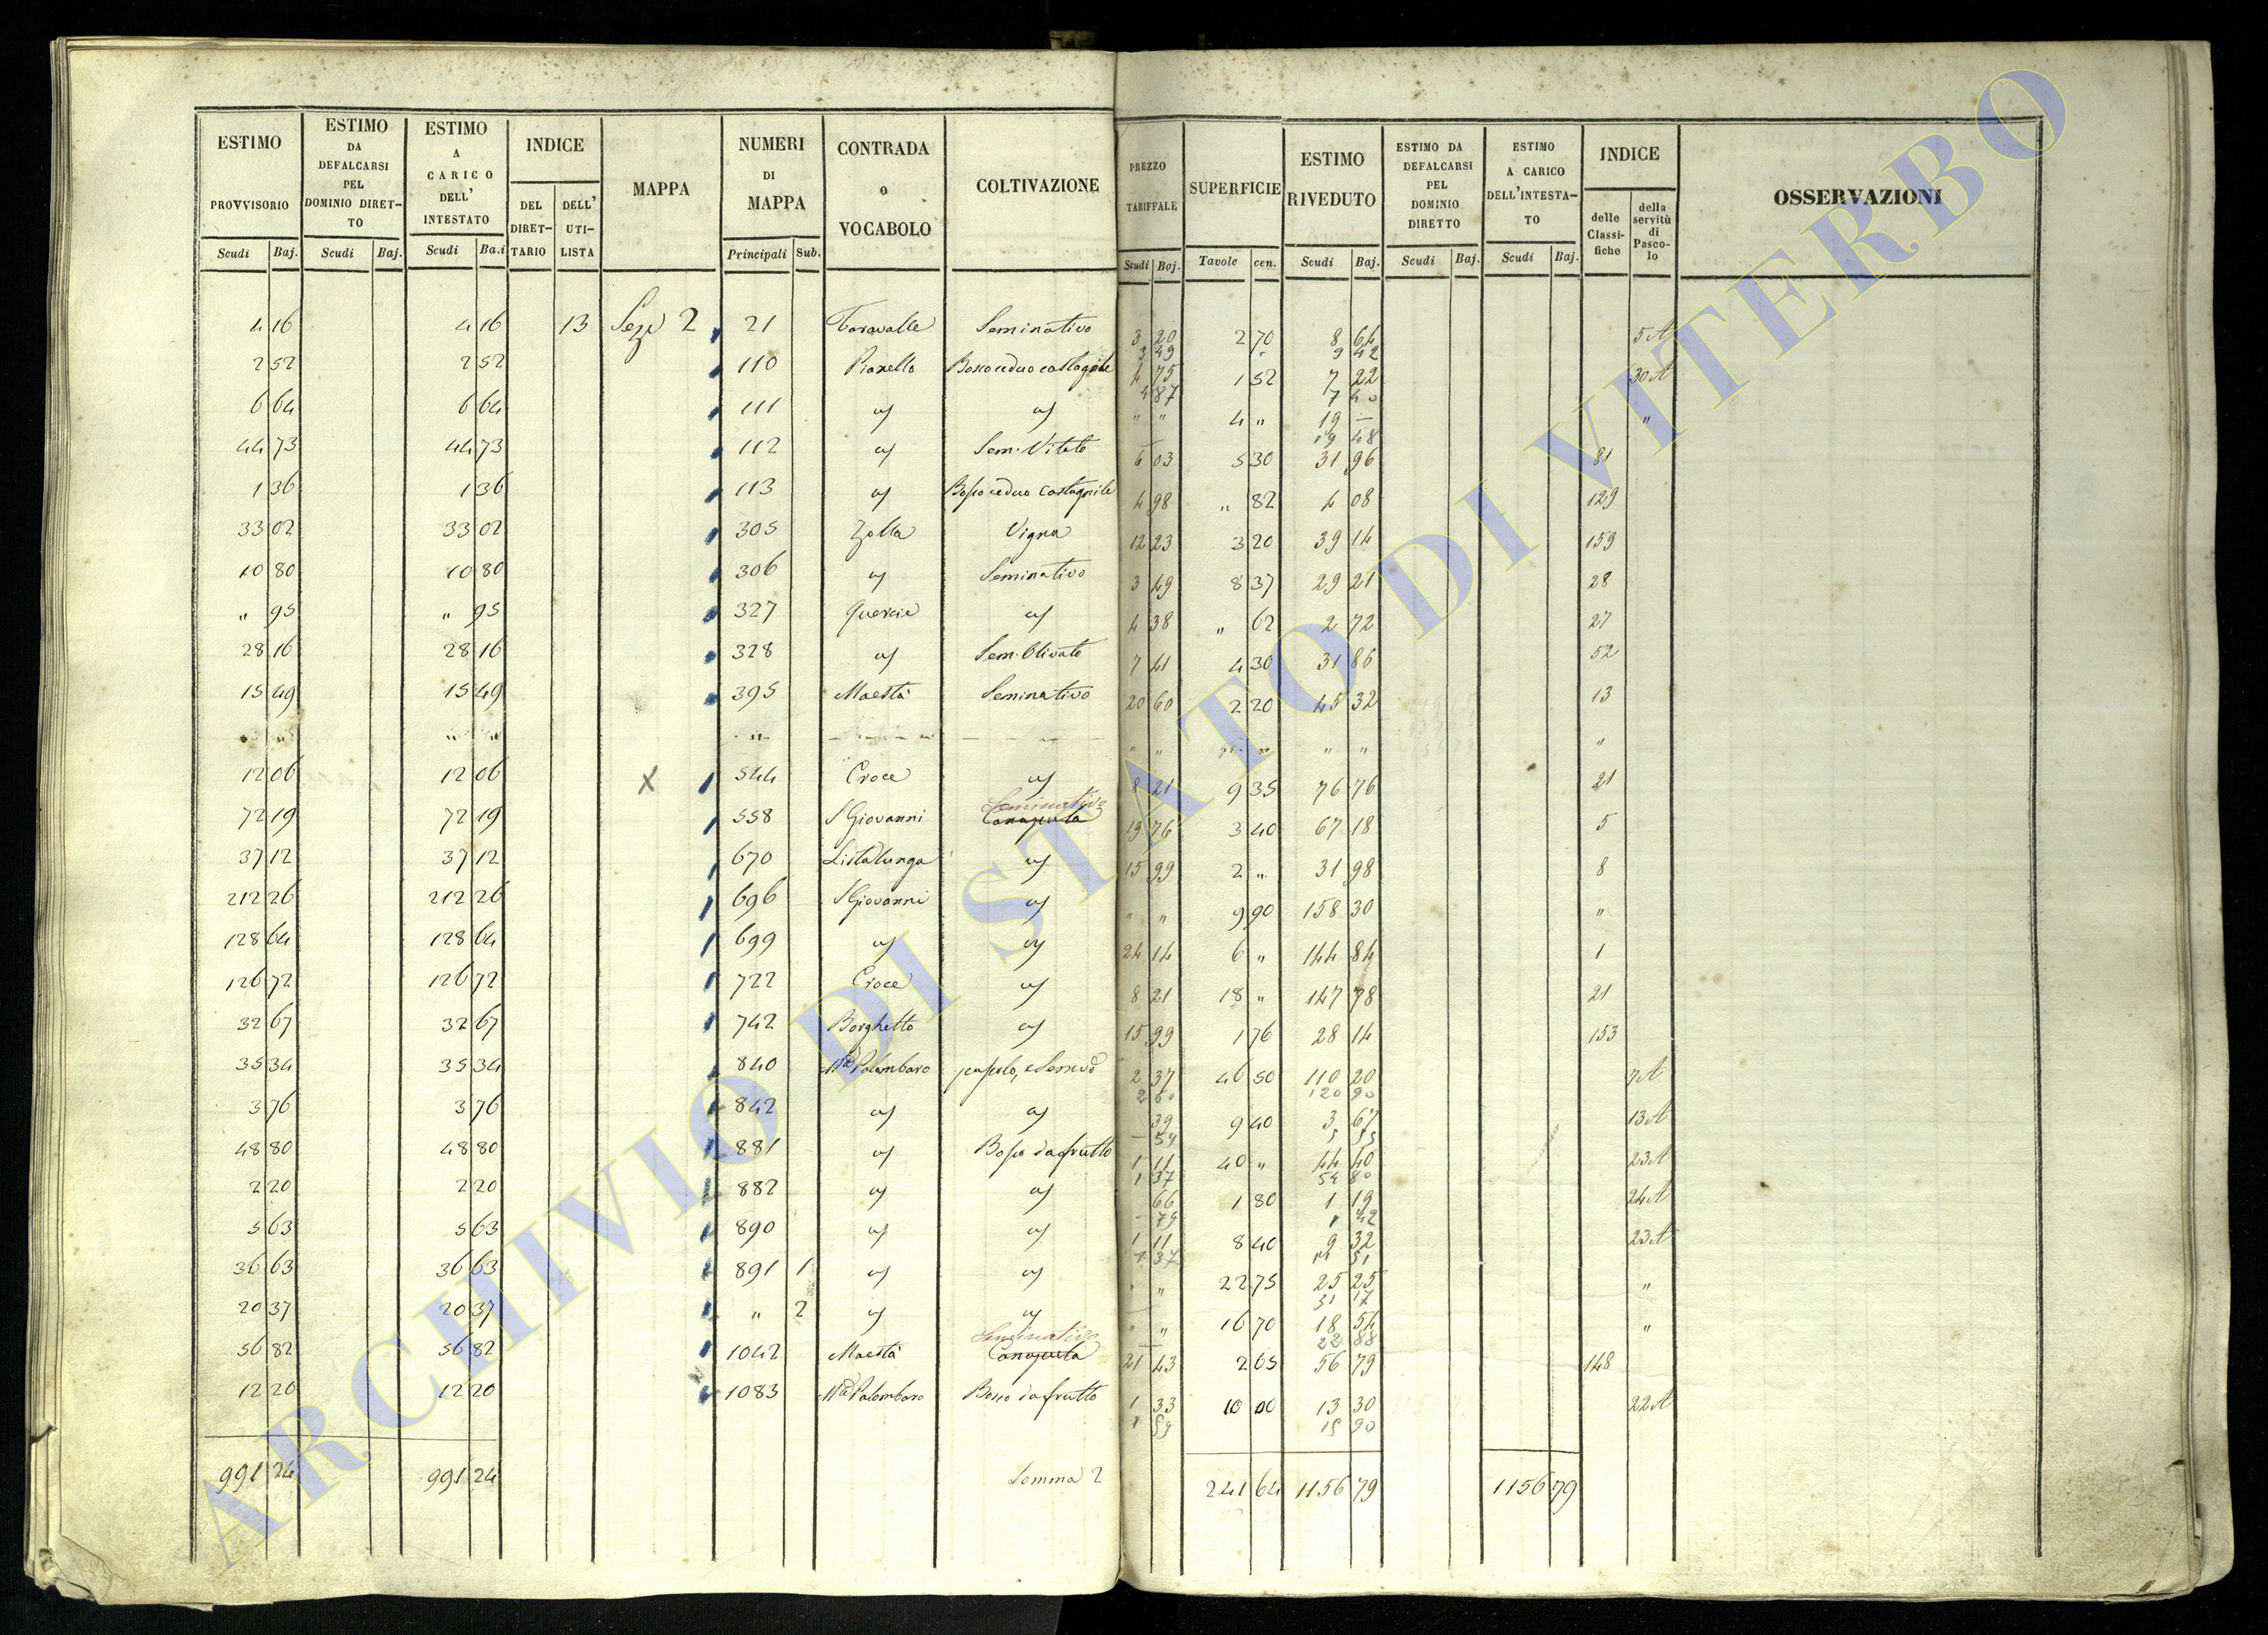 ESTIMO PROVVISORIO Scudi Baj. | ESTIMO DA DEFALCARSI PEL DOMINIO DIRETTO Scudi Baj. | ESTIMO A CARICO DELL' INTESTATO Scudi Ba.i | INDICE DEL DIRETTARIO | DELL' UTILISTA | MAPPA | NUMERI DI MAPPA Principali Sub. | CONTRADA o VOCABOLO | COLTIVAZIONE | PREZZO TARIFFALE Scudi Baj. | SUPERFICIE Tavole cen. | ESTIMO RIVEDUTO Scudi Baj. | ESTIMO DA DEFALCARSI PEL DOMINIO DIRETTO Scudi Baj. | ESTIMO A CARICO DELL'INTESTATO Scudi Baj. | INDICE delle Classifiche | della servitù di Pascolo | OSSERVAZIONI
4 16 | 4 16 | 13 | 2 | 21 | Seminativo | 3 20 | 2 70 | 8 64 | 5 A
3 49 | 9 42
2 52 | 2 52 | 110 | Pianello | Bosco ceduo castagnile | 4 75 | 1 52 | 7 22 | 30 A
4 87 | 7 40
6 64 | 6 64 | 111 | " " | 4 " | 19 — | "
19 48
44 73 | 44 73 | 112 | Sem. Vitato | 6 03 | 5 30 | 31 96 | 81
1 36 | 1 36 | 113 | Bosco ceduo castagnile | 4 98 | " 82 | 4 08 | 129
33 02 | 33 02 | 305 | Zolla | Vigna | 12 23 | 3 20 | 39 14 | 153
10 80 | 10 80 | 306 | Seminativo | 3 49 | 8 37 | 29 21 | 28
" 95 | " 95 | 327 | Quercie | 4 38 | " 62 | 2 72 | 27
28 16 | 28 16 | 328 | Sem. Olivato | 7 41 | 4 30 | 31 86 | 52
15 49 | 15 49 | 395 | Maestà | Seminativo | 20 60 | 2 20 | 45 32 | 13
" " | " " | " | " " | " " | " " | "
12 06 | 12 06 | X | 544 | Croce | 8 21 | 9 35 | 76 76 | 21
Seminativo
72 19 | 72 19 | 558 | S Giovanni | Canaputa | 19 76 | 3 40 | 67 18 | 5
37 12 | 37 12 | 670 | Lista lunga | 15 99 | 2 " | 31 98 | 8
212 26 | 212 26 | 696 | S Giovanni | " " | 9 90 | 158 30 | "
128 64 | 128 64 | 699 | 24 14 | 6 " | 144 84 | 1
126 72 | 126 72 | 722 | Croce | 8 21 | 18 " | 147 78 | 21
32 67 | 32 67 | 742 | Borghetto | 15 99 | 1 76 | 28 14 | 153
35 34 | 35 34 | 840 | Palombaro | 2 37 | 46 50 | 110 20 | 7 A
2 60 | 120 90
3 76 | 3 76 | 842 | 39 | 9 40 | 3 67 | 13 A
— 59 | 5 55
48 80 | 48 80 | 881 | Bosco da frutto | 1 11 | 40 " | 44 40 | 23 A
1 37 | 54 80
2 20 | 2 20 | 882 | 66 | 1 80 | 1 19 | 24 A
— 79 | 1 42
5 63 | 5 63 | 890 | 1 11 | 8 40 | 9 32 | 23 A
1 37 | 11 51
36 63 | 36 63 | 891 | 1 | " " | 22 75 | 25 25 | "
31 17
20 37 | 20 37 | " | 2 | " " | 16 70 | 18 54 | "
22 88
Seminativo
56 82 | 56 82 | 1042 | Maestà | Canaputa | 21 43 | 2 65 | 56 79 | 148
12 20 | 12 20 | 1083 | Palombaro | Bosco da frutto | 1 33 | 10 00 | 13 30 | 22 A
1 59 | 15 90
991 24 | 991 24 | Somma 2 | 241 64 | 1156 79 | 1156 79
ARCHIVIO DI STATO DI VITERBO